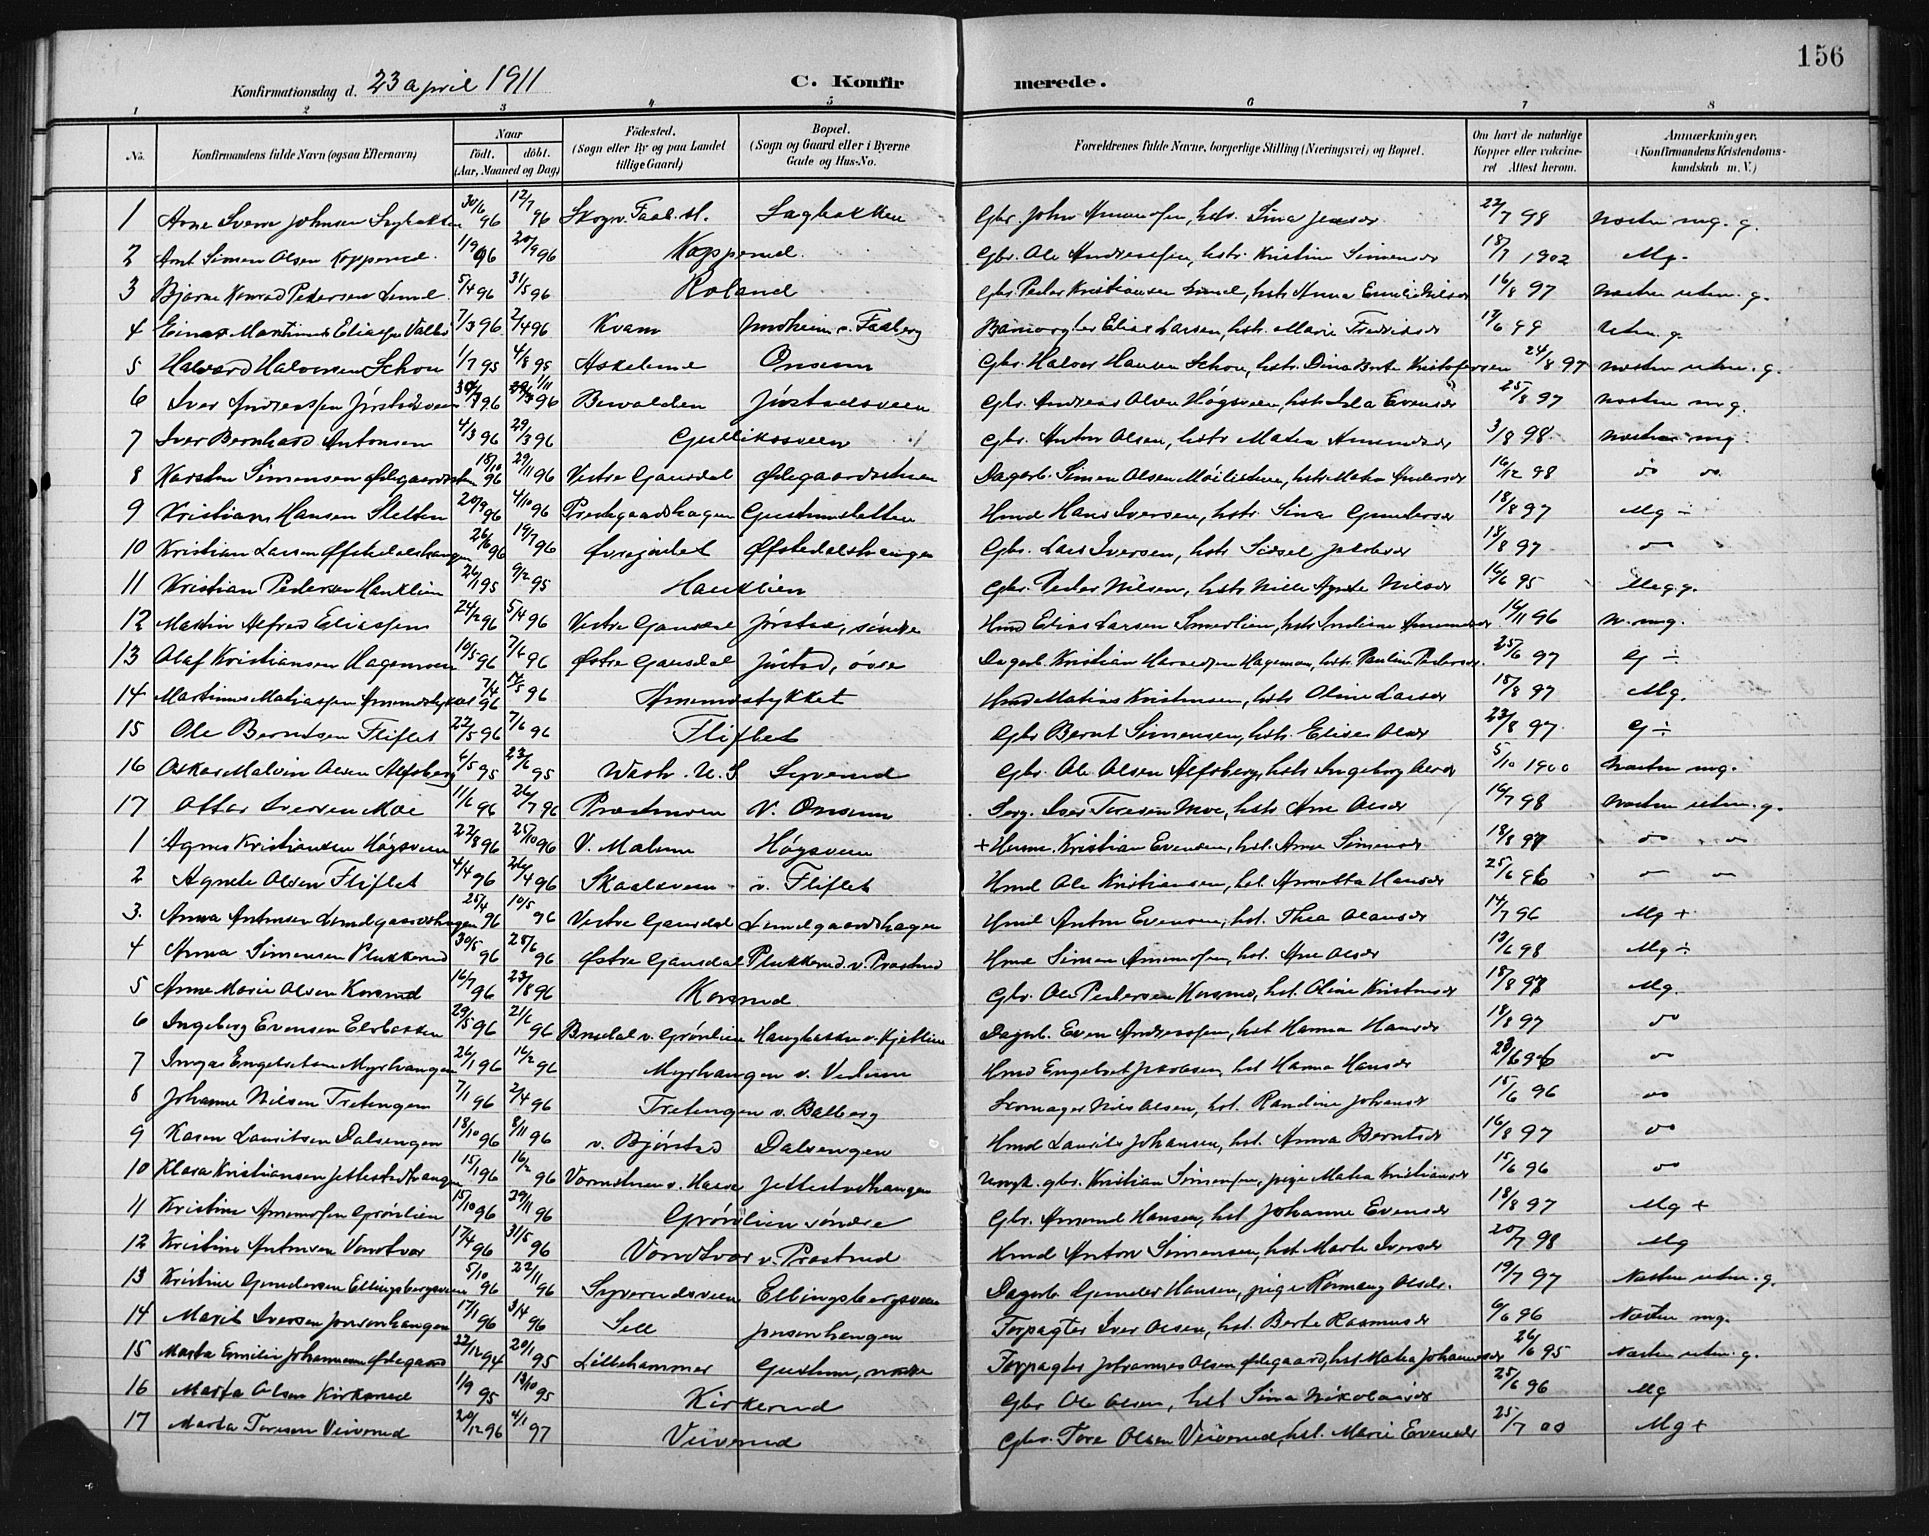 156
Konfirmationsdag d. 23 april 1911 C. Konfirmerede.
1 2 3 4 5 6 7 8
No. Konfirmandens fulde Navn (ogsaa Efternavn) Naar født. døbt. (Aar, Maaned og Dag) Fødested. (Sogn eller By og paa Landet tillige Gaard) Bopæl. (Sogn og Gaard eller i Byerne Gade og Hus-No. Forældrenes fulde Navne, borgerlige Stilling (Næringsvei) og Bopæl. Om havt de naturlige Kopper eller vaccineret Attest herom. Anmærkninger. (Konfirmandens Kristendomskundskab m. V.)
1 Arne Svern Johnsen Sagbakken 30/6 96 12/7 96 Sagbakken Gbr. John Amundsen, hstr. Sina 22/7 98 næsten mg. g.
2 Ant. Simen Olsen Kopperud 1/9 96 20/9 96 Kopperud. Gbr. Ole Andreassen, hstr. Kristine Simensdr 18/7 1902 Mg.
3 Bjarne Konrad Pedersen Lund 5/4 96 31/5 96 Roland Gbr. Peder Kristiansen Lund, hstr Anna Emilie Nilsdr 16/8 97 næsten utm. g.
4 Einar Martinus Eliassen 7/3 96 2/4 96 Kvam v. Faaberg Elias Larsen, hstr. Marie Fredriksdr 17/6 99 utm. g.
5 Halvard Halvorsen Schou 1/7 95 4/8 95 Onsum Gbr. Halvor Hansen Schou, hstr. Dina Berte Kristofersen 24/8 97 næsten utm. g.
6 Iver Andreassen Jørstadsveen 96 96 Jørstadsveen Gbr. Andreas Olsen Høgsveen, hstr. Evensdr 25/8 97 næsten mg.
7 Iver Bernhard Antonsen 4/3 96 29/3 96 Gullikssveen Gbr. Anton Olsen, hstr Matea Amundsdr 3/8 98. næsten mg
8 Karsten Simensen Ødegaardsstuen 18/10 96 29/11 96 Vestre Gausdal Ødegaardsstuen Dagarb. Simen Olsen, hstr. Matea Andersdr 16/12 98 " "
9 Kristian Hansen Sletten 20/9 96 4/10 96 Prestgaardshagen Gustumsletten Hmd Hans Iversen, hstr. Sina Gundersdr 18/8 97 Mg ÷
10 Kristian Larsen Øfstedalshaugen 26/6 96 19/7 96 Øfstedalshaugen Gbr. Lars Iversen, hstr Sidsel Jakobsdr 18/8 97 "
11 Kristian Pedersen Hauklien 26/1 95 9/2 95 Hauklien Gbr. Peder Nilsen, hstr Nille Agnete Nilsdr 16/6 95 Meg. g.
12 Martin Alfred Eliassen 24/2 96 5/4 96 Vestre Gausdal Jørstad, søndre Hmd Elias Larsen, hstr Indiane Amundsdr 14/11 96 n. mg.
13 Olaf Kristiansen Hagemoen 10/5 96 7/6 96 Østre Gausdal Jørstad, øvre Dagarb. Kristian Hagemoen, hstr. Pauline Pedersdr. 25/6 97 G ÷
14 Martinus Matiassen Amundstykket 7/4 96 17/5 96 Amundstykket Hmd Matias Kristensen, hstr Oline Larsdr 18/8 97 Mg.
15 Ole Berntsen Fliflet 22/5 96 7/6 96 Fliflet Gbr Bernt Simensen, hstr. Elise Olsdr 23/8 97. G ÷
16 Oskar Malvin Olsen Alfsberg 6/5 95 23/6 95 Wash. U. S Syverud Gbr. Ole Olsen Alfsberg, hstr Ingeborg Olsdr 5/10 1900 Næsten mg.
17 Ottar Iversen Moe 11/6 96 26/7 96 Prestmoen V. Onsum Serg. Iver Toresen Moe, hstr Ane Olsdr 14/7 98 Næsten utm. g.
1 Agnes Kristiansen Høgsveen 22/8 96 25/10 96 V. Malum Høgsveen + Husm. Kristian Evensen, hst. Anne Simensdr 18/8 97 " "
2 Agnete Olsen Fliflet 4/4 96 26/4 96 Skaalsveen v. Fliflet Hmd Ole Kristiansen, hst. Annetta Hansdr 25/6 96 " "
3. Anna Antonsen Lundgaardshagen 25/4 96 10/5 96 Vestre Gausdal Lundgaardshagen Hmd Anton Evensen, hst. Thea Olausdr 14/7 96 Mg +
4 Anna Simensen Plukkerud 30/5 96 28/6 96 Østre Gausdal Plukkerud v. Prostrud Hmd Simen Amundsen, hst. Ane Olsdr 13/6 98 Mg ÷
5 Anne Marie Olsen Korsrud 16/7 96 23/8 96 Korsrud Gbr. Ole Pedersen, hst. Oline Kristensdr 18/8 97 Mg.
6 Ingeborg Evensen 29/5 96 21/6 96 v. Grønlien Haugbakken v. Kjøtlien Dagarb. Even Andreassen, hst Hanna Hansdr 18/8 97 "
7 Inga Engebretsen Myrhaugen 26/1 96 16/2 96 Myrhaugen v. Vedum Hmd Engebret Jakobsen, hst Hanna Hansdr 96 "
8 Johanne Nilsen Tretengen 7/1 96 2/4 96 Tretengen v. Balberg Skomager Nils Olsen, hst. Randine Johansdr 15/6 96 "
9 Karen Lauritsen Dalsengen 18/10 96 8/11 96 v. Bjørstad Dalsengen Hmd Laurits Johansen, hst. Anna Berntsdr 16/8 97 "
10 Klara Kristiansen Jettestadhaugen 15/1 96 16/2 96 Jettestadhaugen Ungk. gbr. Kristian Simensen, pige Matea Kristiansdr 15/6 96 "
11 Kristine Amundsen Grønlien 15/10 96 29/11 96 Grønlien søndre Gbr. Amund Hansen, hst Johanne Evensdr 18/8 97 Mg +
12 Kristine Antonsen Vondtvor 17/4 96 31/5 96 Vondtvor v. Prostrud Hmd Anton Simensen, hst Marte Iversdr 20/7 98 Mg
13 Kristine Gundersen Ellingsbergsveen 5/10 96 22/11 96 Syverudsveen Ellingsbergsveen Dagarb. Gunder Hansen, pige Rønnaug Olsdr. 19/7 97 Næsten utm. g.
14 Marit Iversen Jonsenhaugen 17/1 96 3/4 96 Sell Jonsenhaugen Forpagter Iver Olsen, hst. Berte Rasmusdr 6/6 96 Næsten mg.
15 Marta Emilie Johannessen Ødegaard 22/12 94 20/1 95 Lillehammer Gustum, nordre Forpagter Johannes Olsen Ødegaard, hst Matea Johannesdr 26/6 95 Næsten utm. g.
16 Marta Olsen Kirkerud 1/9 95 13/10 95 Kirkerud Gbr Ole Olsen, hst Sina Nikolaisdr 25/6 96 Mg
17 Marta Toresen Veiverud 20/12 96 4/1 97 Veiverud Gbr. Tore Olsen Veiverud, hst. Marie Evensdr 25/7 00 Mg +